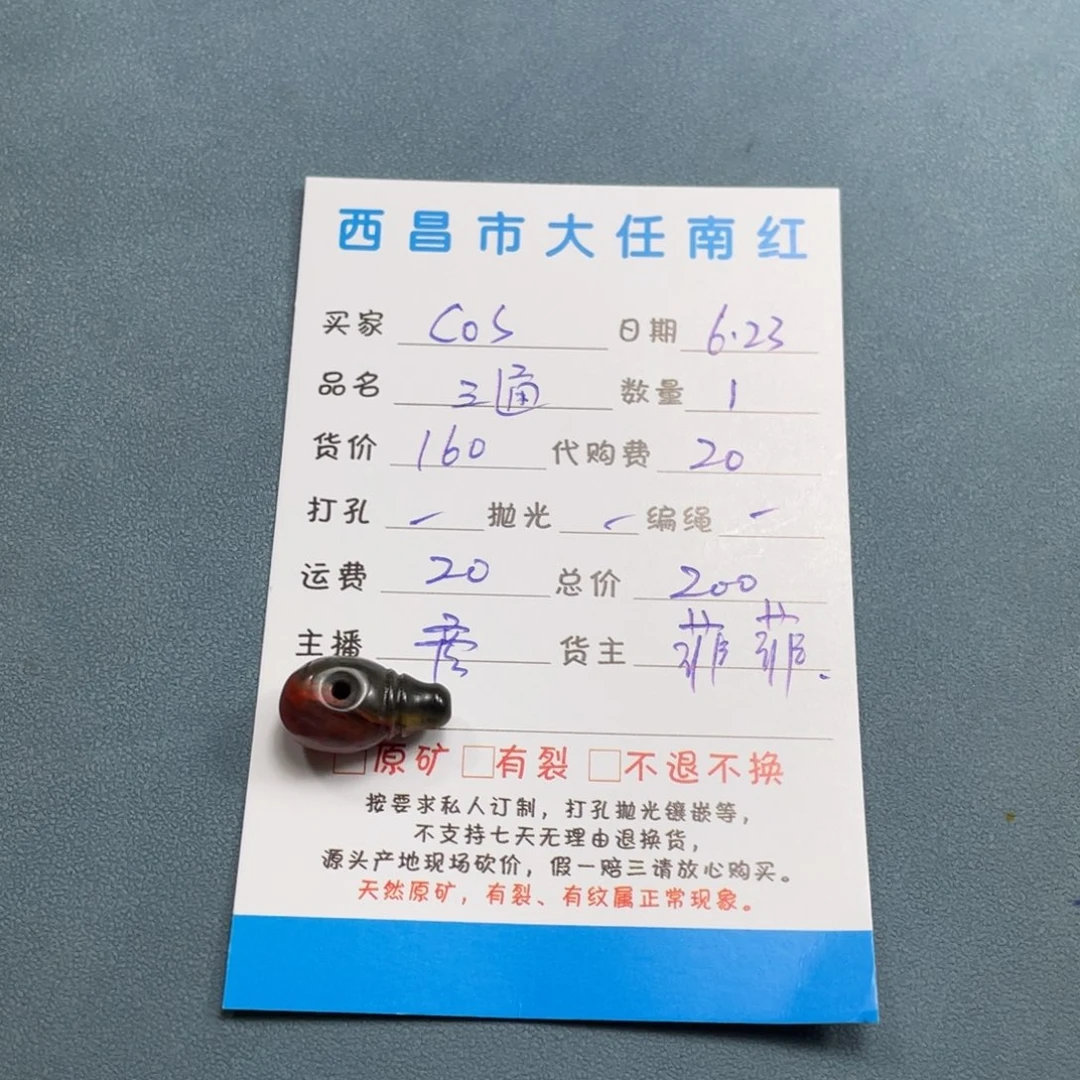 西昌市大任南红
买家 COS 日期 6.23
品名 三通 数量 1
货价 160 代购费 20
打孔 - 抛光 - 编绳 -
运费 20 总价 200
主播 货主 菲菲.
□原矿 □有裂 □不退不换
按要求私人订制，打孔抛光镶嵌等，
不支持七天无理由退换货，
源头产地现场砍价，假一赔三请放心购买。
天然原矿，有裂、有纹属正常现象。